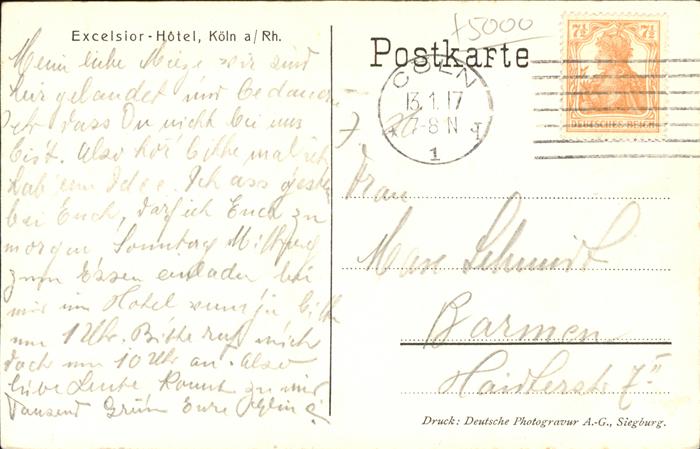 +5000
Excelsior-Hôtel, Köln a/Rh.
Postkarte
COELN
13.1.17
7-8 N
1
7½ 7½
DEUTSCHES REICH
Meine liebe Mieze wir sind
hier gelandet und bedauern
sehr dass Du nicht bei uns
bist. Also hör bitte mal ich
hab' eine Idee. Ich ass gestern
bei Euch, darf ich Euch zu
morgen Sonntag Mittag
zum Essen einladen bei
mir im Hotel wenn ja bitte
um 1 Uhr. Bitte ruf mich
doch um 10 Uhr an. Also
liebe Leute kommt zu mir
Tausend Grüße Eure
Frau
Max Schmidt
Barmen
Haidterstr. 7
Druck: Deutsche Photogravur A.-G., Siegburg.